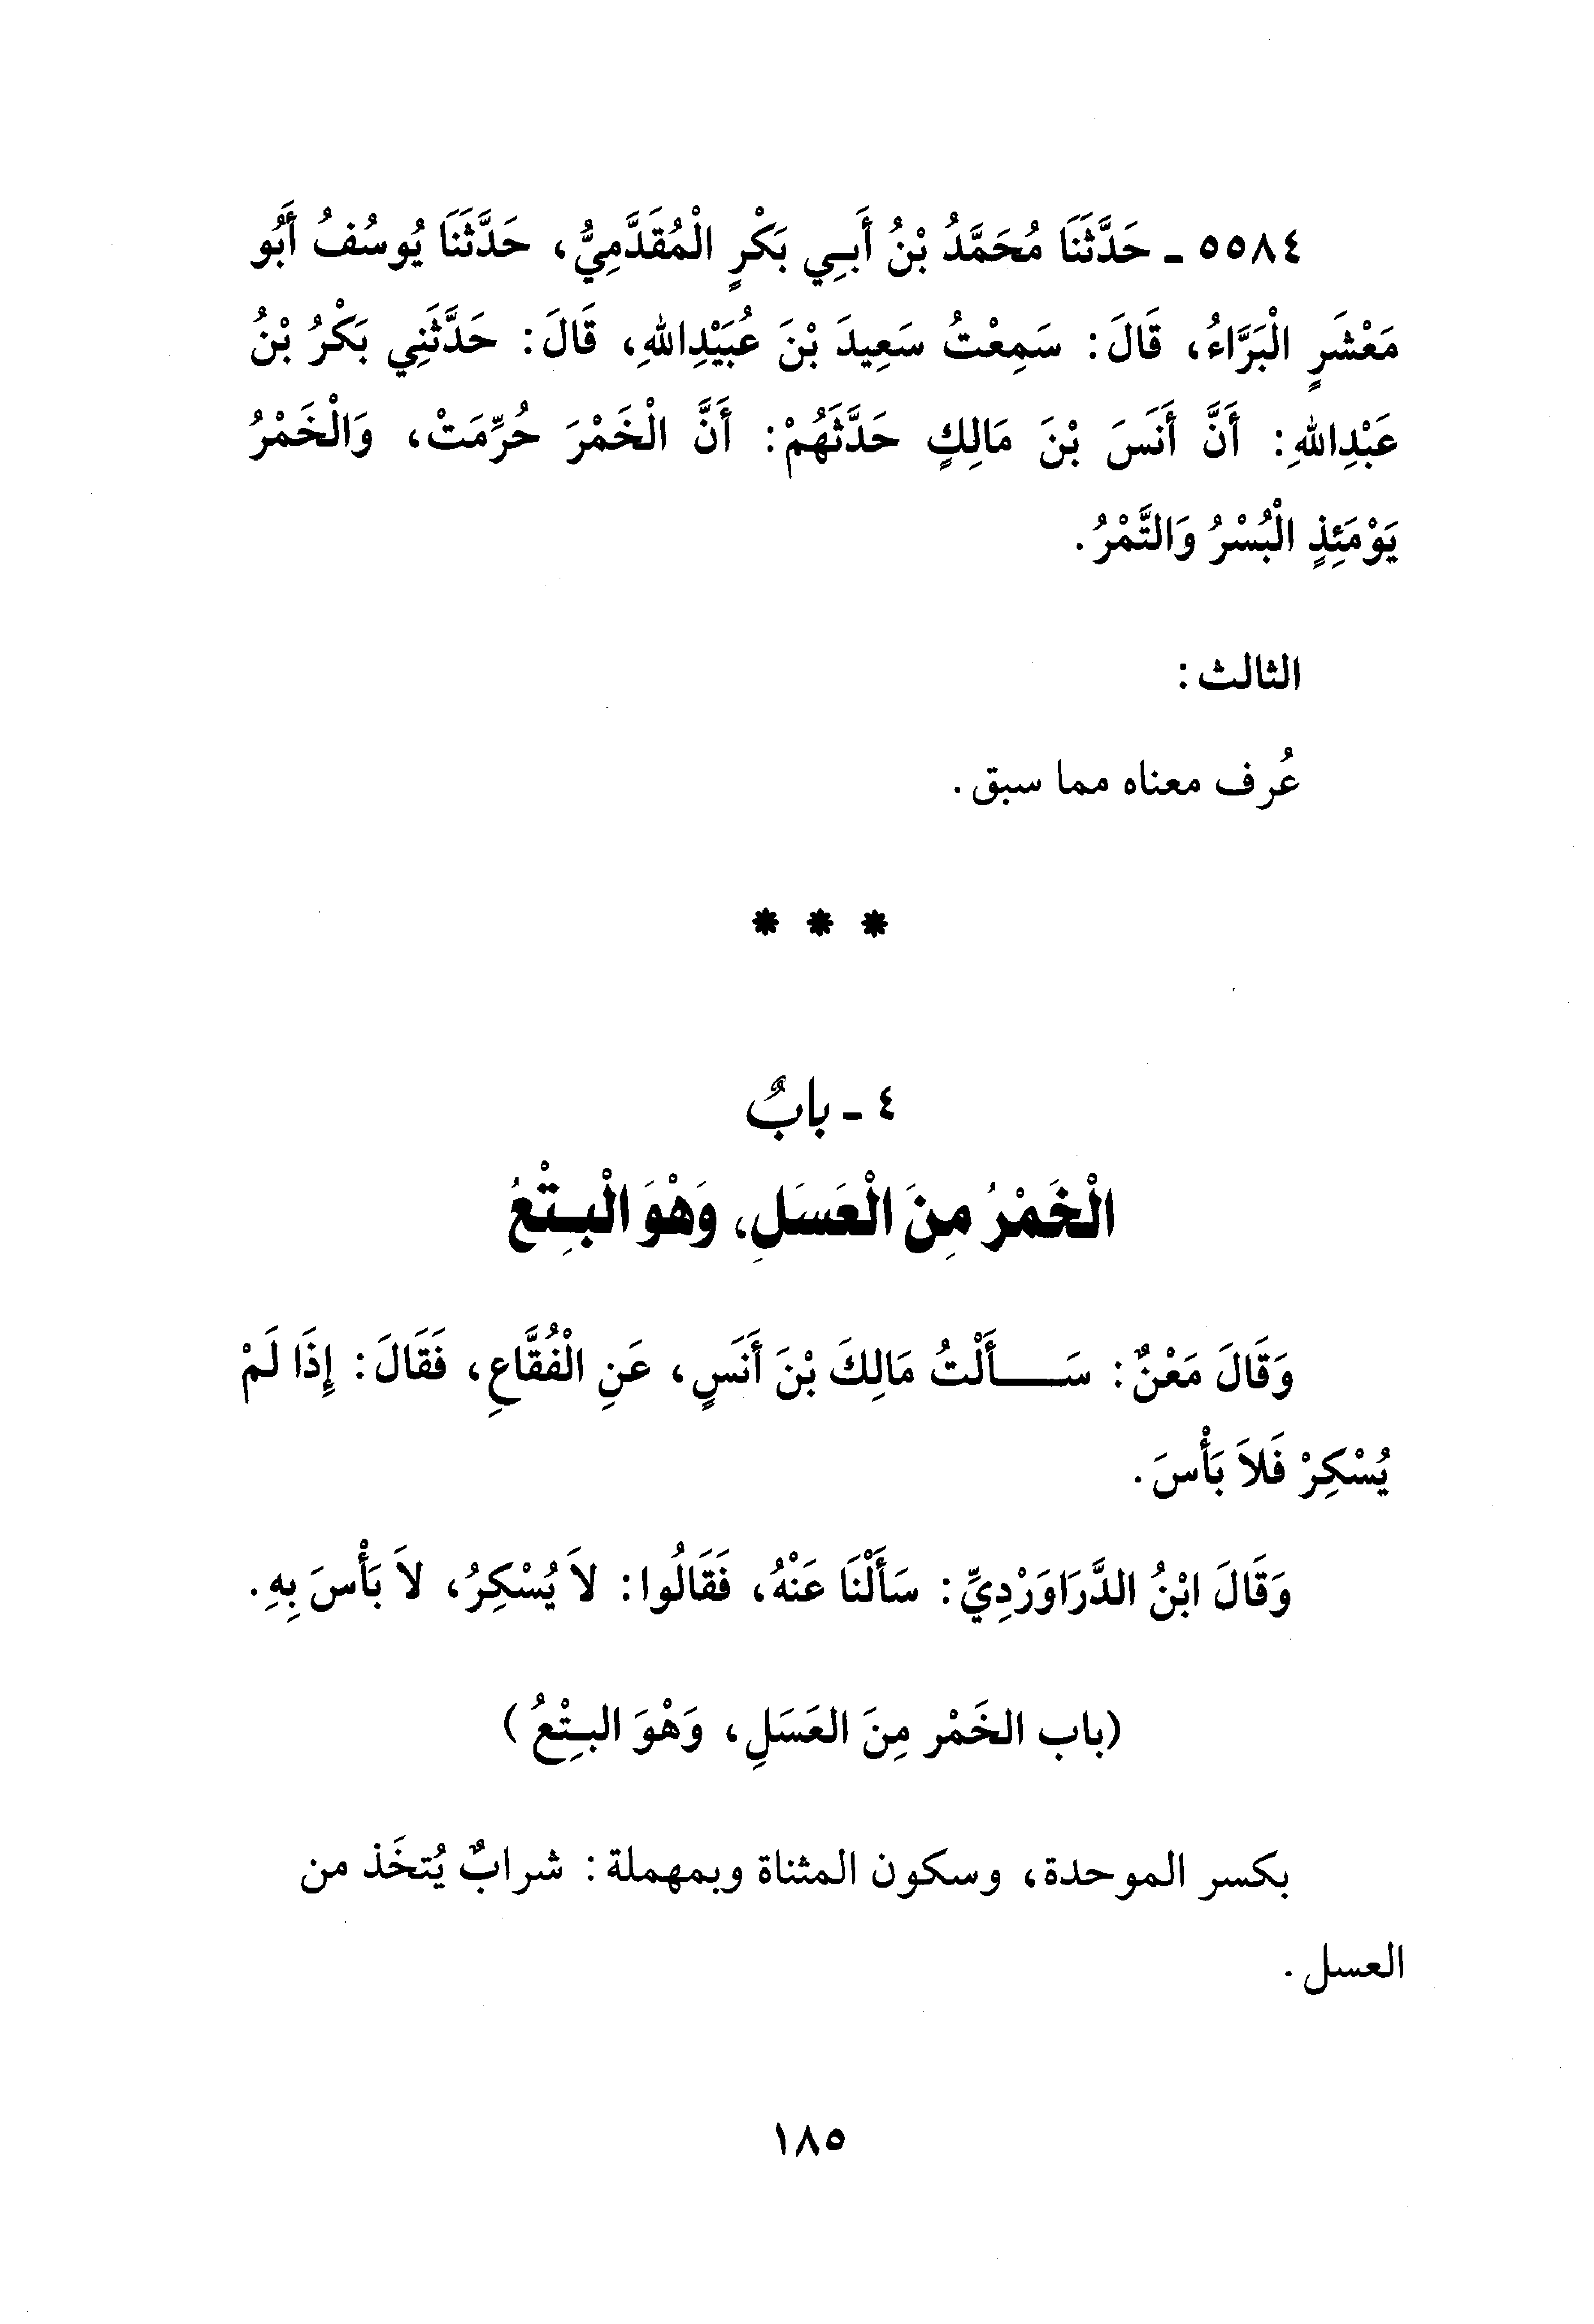 ٥٥٨٤ ـ حَدَّثَنَا مُحَمَّدُ بْنُ أَبِي بَكْرٍ الْمُقَدَّمِيُّ، حَدَّثَنَا يُوسُفُ أَبُو
مَعْشَرٍ الْبَرَّاءُ، قَالَ: سَمِعْتُ سَعِيدَ بْنَ عُبَيْدِاللهِ، قَالَ: حَدَّثَنِي بَكْرُ بْنُ
عَبْدِاللهِ: أَنَّ أَنَسَ بْنَ مَالِكٍ حَدَّثَهُمْ: أَنَّ الْخَمْرَ حُرِّمَتْ، وَالْخَمْرُ
يَوْمَئِذٍ الْبُسْرُ وَالتَّمْرُ.
الثالث:
عُرف معناه مما سبق.
* * *
٤ ـ بابٌ
الْخَمْرُ مِنَ الْعَسَلِ، وَهْوَ الْبِتْعُ
وَقَالَ مَعْنٌ: سَـــأَلْتُ مَالِكَ بْنَ أَنَسٍ، عَنِ الْفُقَّاعِ، فَقَالَ: إِذَا لَمْ
يُسْكِرْ فَلاَ بَأْسَ.
وَقَالَ ابْنُ الدَّرَاوَرْدِيِّ: سَأَلْنَا عَنْهُ، فَقَالُوا: لاَ يُسْكِرُ، لاَ بَأْسَ بِهِ.
(باب الخَمْر مِنَ العَسَلِ، وَهْوَ البِتْعُ)
بكسر الموحدة، وسكون المثناة وبمهملة: شرابٌ يُتخَذ من
العسل.
١٨٥